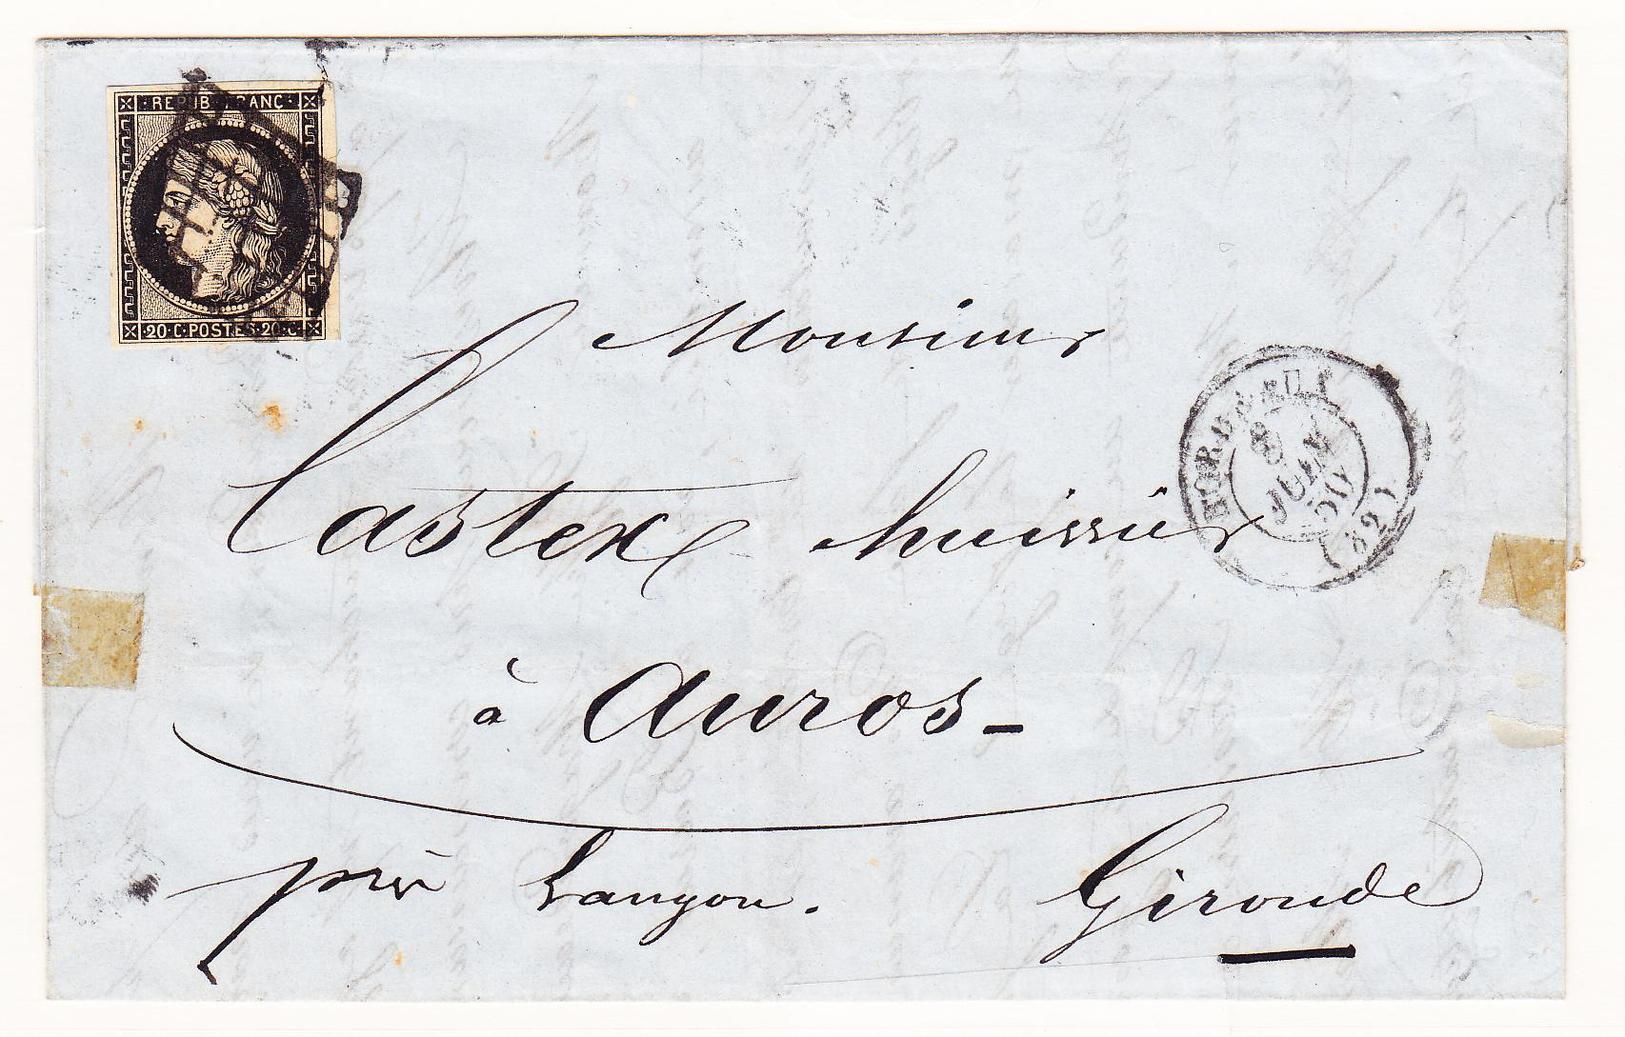 REPUB FRANC
20 C POSTES 20 C
Monsieur
Castex huissier
à Auros -
près Langon.
Gironde
BORDEAUX
8
JUIN
50
(32)